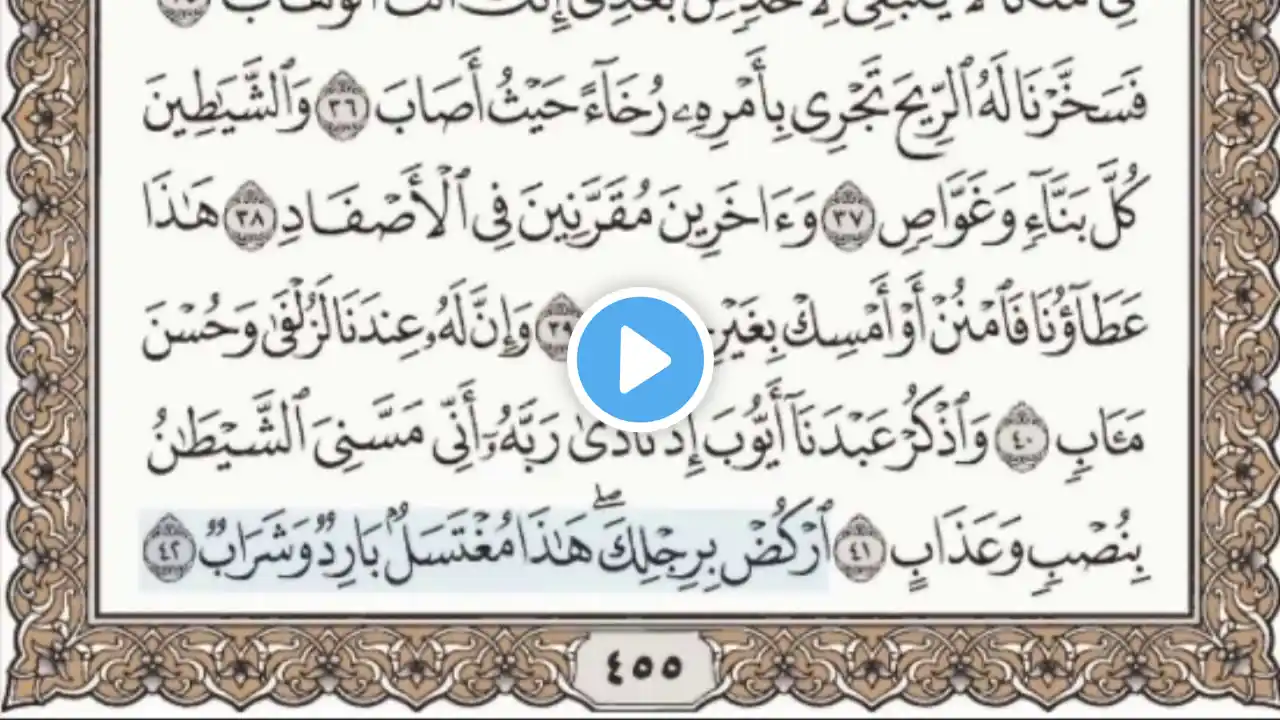 فَسَخَّرْنَا لَهُ ٱلرِّيحَ تَجْرِى بِأَمْرِهِۦ رُخَآءً حَيْثُ أَصَابَ ٣٦ وَٱلشَّيَٰطِينَ
كُلَّ بَنَّآءٍ وَغَوَّاصٍ ٣٧ وَءَاخَرِينَ مُقَرَّنِينَ فِى ٱلْأَصْفَادِ ٣٨ هَٰذَا
عَطَآؤُنَا فَٱمْنُنْ أَوْ أَمْسِكْ بِغَيْرِ ٣٩ وَإِنَّ لَهُۥ عِندَنَا لَزُلْفَىٰ وَحُسْنَ
مَـَٔابٍ ٤٠ وَٱذْكُرْ عَبْدَنَآ أَيُّوبَ إِذْ نَادَىٰ رَبَّهُۥٓ أَنِّى مَسَّنِىَ ٱلشَّيْطَٰنُ
بِنُصْبٍ وَعَذَابٍ ٤١ ٱرْكُضْ بِرِجْلِكَ ۖ هَٰذَا مُغْتَسَلٌۢ بَارِدٌ وَشَرَابٌ ٤٢
٤٥٥